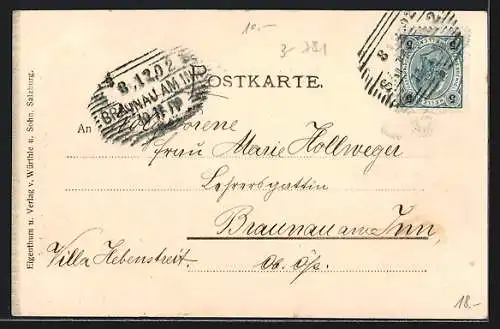 10.-
3-281
8.12.02
BRAUNAU AM INN
POSTKARTE.
An
Frau Marie Hollweger
Lehrersgattin
Braunau am Inn,
Villa Hebenstreit. Ob. Öst.
18.-
Eigenthum u. Verlag v. Würthle u. Sohn, Salzburg.
5 5
5 5